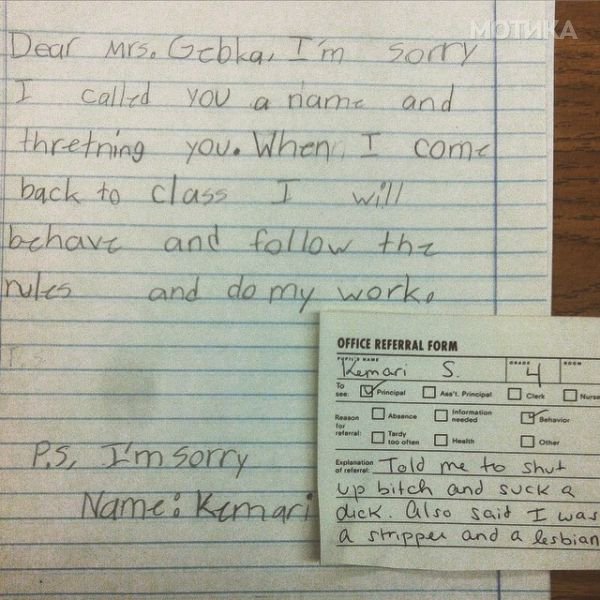 МОТИКА
Dear Mrs. Gebka, I'm sorry
I called you a name and
thretning you. When I come
back to class I will
behave and follow the
rules and do my work.
P.S.
P.S. I'm sorry
Name: Kemari
OFFICE REFERRAL FORM
PUPIL'S NAME GRADE ROOM
Kemari S. 4
To see: Principal Ass't. Principal Clerk Nurse
Reason for referral: Absence Information needed Behavior
Tardy too often Health Other
Explanation of referral: Told me to shut
up bitch and suck a
dick. Also said I was
a stripper and a lesbian